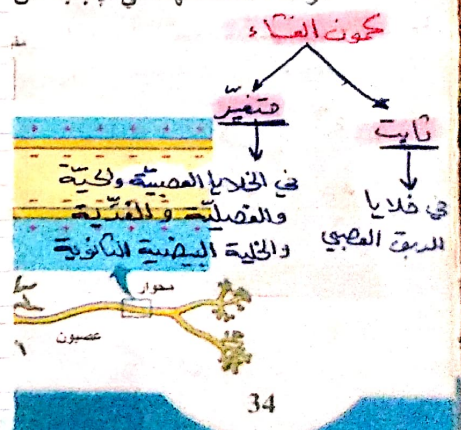 كمون الغشاء
متغيّر
ثابت
في الخلايا العصبيّة والحيّة
والعضليّة والغدّية
والخلية البيضية الثانوية
في خلايا
الدبق العصبي
محوار
عصبون
34